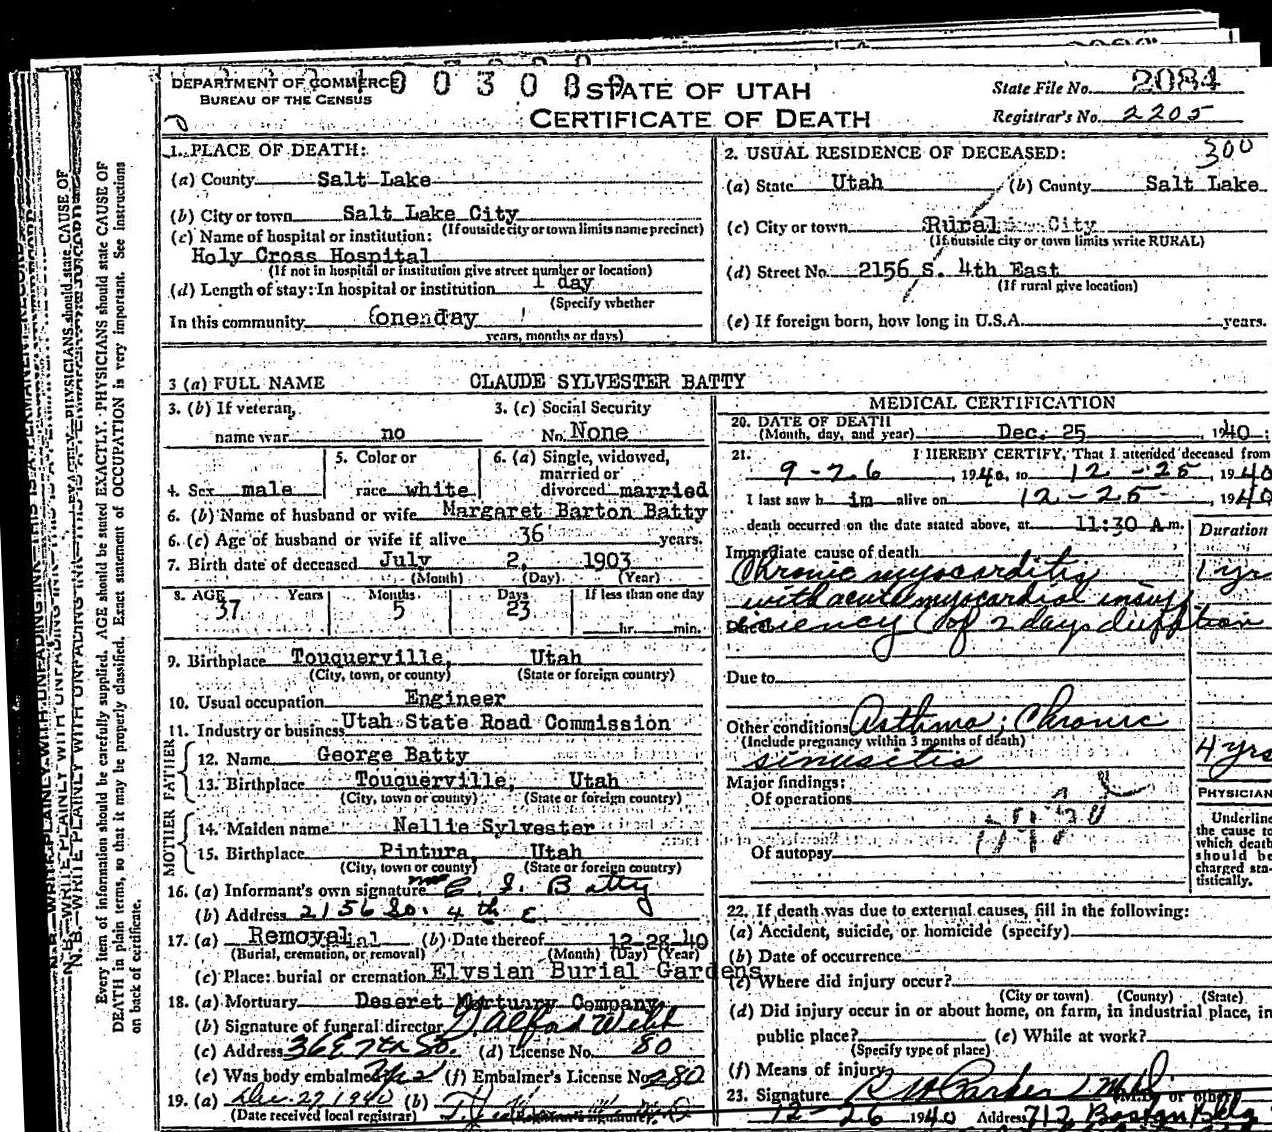 DEPARTMENT OF COMMERCE
BUREAU OF THE CENSUS
STATE OF UTAH
CERTIFICATE OF DEATH
State File No. 2084
Registrar's No. 2205
1. PLACE OF DEATH:
(a) County Salt Lake
(b) City or town Salt Lake City
(If outside city or town limits name precinct)
(c) Name of hospital or institution:
Holy Cross Hospital
(If not in hospital or institution give street number or location)
(d) Length of stay: In hospital or institution 1 day
(Specify whether
In this community one day
years, months or days)
2. USUAL RESIDENCE OF DECEASED:
300
(a) State Utah (b) County Salt Lake
(c) City or town Rural City
(If outside city or town limits write RURAL)
(d) Street No. 2156 S. 4th East
(If rural give location)
(e) If foreign born, how long in U.S.A. years.
3 (a) FULL NAME CLAUDE SYLVESTER BATTY
3. (b) If veteran,
name war no
3. (c) Social Security
No. None
4. Sex male
5. Color or
race white
6. (a) Single, widowed,
married or
divorced married
6. (b) Name of husband or wife Margaret Barton Batty
6. (c) Age of husband or wife if alive 36 years.
7. Birth date of deceased July 2, 1903
(Month) (Day) (Year)
8. AGE Years Months Days If less than one day
37 5 23
hr. min.
9. Birthplace Touquerville, Utah
(City, town, or county) (State or foreign country)
10. Usual occupation Engineer
11. Industry or business Utah State Road Commission
FATHER
12. Name George Batty
13. Birthplace Touquerville, Utah
(City, town or county) (State or foreign country)
MOTHER
14. Maiden name Nellie Sylvester
15. Birthplace Pintura, Utah
(City, town or county) (State or foreign country)
16. (a) Informant's own signature Mrs C. S. Batty
(b) Address 2156 So. 4th E
17. (a) Removal (b) Date thereof 12-28-40
(Burial, cremation, or removal) (Month) (Day) (Year)
(c) Place: burial or cremation Elysian Burial Gardens
18. (a) Mortuary Deseret Mortuary Company
(b) Signature of funeral director
(c) Address 36 E 7th So. (d) License No. 80
(e) Was body embalmed Yes (f) Embalmer's License No. 280
19. (a) Dec. 27 1940 (b)
(Date received local registrar)
MEDICAL CERTIFICATION
20. DATE OF DEATH
(Month, day, and year) Dec. 25, 1940
21. I HEREBY CERTIFY, That I attended deceased from
9-26, 1940, to 12-25, 1940
I last saw him alive on 12-25- 1940
death occurred on the date stated above, at 11:30 A m.
Duration
Immediate cause of death
Chronic myocarditis 1 yr
with acute myocardial insuf
ficiency (of 2 days duration
Due to
Other conditions Asthma; Chronic
(Include pregnancy within 3 months of death)
sinusitis 4 yrs
Major findings:
Of operations
Of autopsy
PHYSICIAN
Underline
the cause to
which death
should be
charged sta-
tistically.
22. If death was due to external causes, fill in the following:
(a) Accident, suicide, or homicide (specify)
(b) Date of occurrence
(c) Where did injury occur?
(City or town) (County) (State)
(d) Did injury occur in or about home, on farm, in industrial place, in
public place? (e) While at work?
(Specify type of place)
(f) Means of injury
23. Signature (M.D. or other)
12-26 1940 Address 712 Boston Bldg
Every item of information should be carefully supplied. AGE should be stated EXACTLY. PHYSICIANS should state CAUSE OF
DEATH in plain terms, so that it may be properly classified. Exact statement of OCCUPATION is very important. See instructions
on back of certificate.